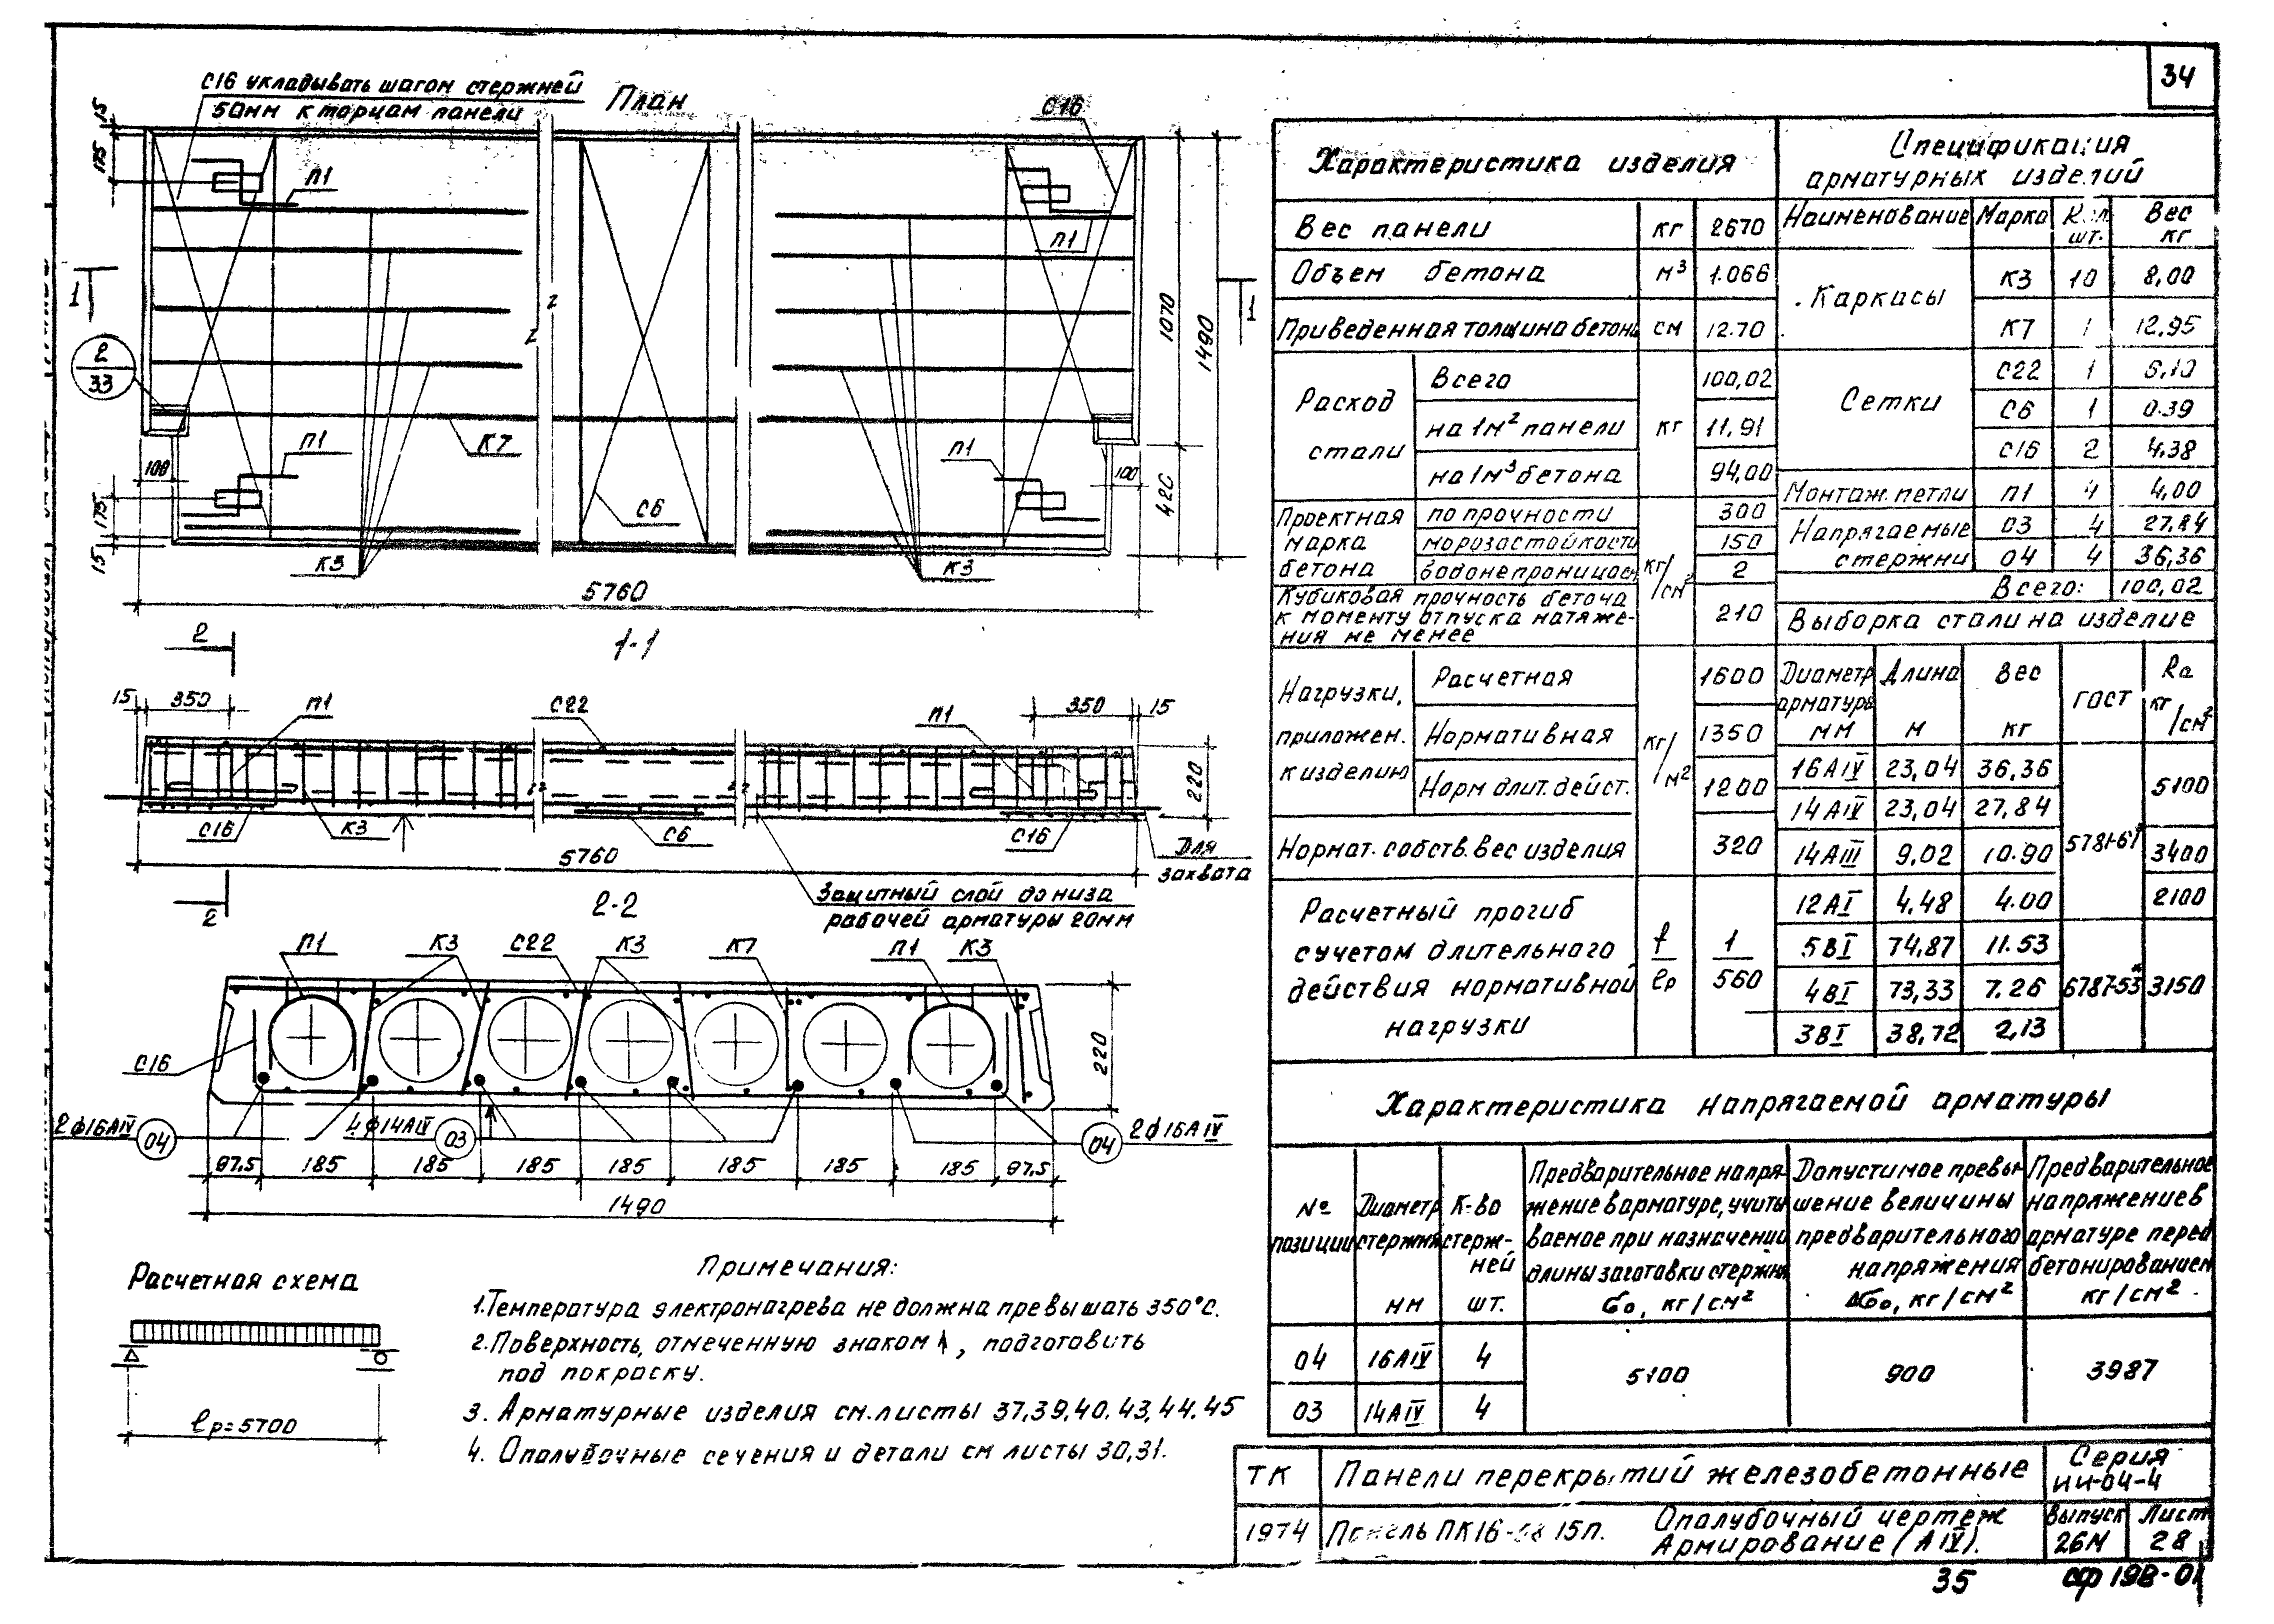 34
С16 укладывать шагом стержней
50мм к торцам панели
План
С16
15
175
П1
П1
1
1
2
33
1070
1490
2
2
П1
К7
П1
100
100
420
С6
175
15
К3
К3
5760
1-1
2
15
350
П1
С22
П1
350
15
220
С16
К3
С6
С16
Для
захвата
5760
Защитный слой до низа
рабочей арматуры 20мм
2
2-2
П1
К3
С22
К3
К7
П1
К3
С16
220
2ф16АIV
04
4ф14АIV
03
04
2ф16АIV
97.5
185
185
185
185
185
185
185
97,5
1490
Расчетная схема
ℓр=5700
Примечания:
1.Температура электронагрева не должна превышать 350°С.
2.Поверхность, отмеченную знаком ↑, подготовить
под покраску.
3. Арматурные изделия см.листы 37,39,40,43,44,45
4. Опалубочные сечения и детали см листы 30,31.
Характеристика изделия
Вес панели кг 2670
Объем бетона м³ 1.066
Приведенная толщина бетона см 12.70
Расход стали
Всего 100,02
на 1м² панели кг 11,91
на 1м³ бетона 94,00
Проектная марка бетона
по прочности 300
морозостойкости 150
водонепроницаем. 2
кг/см²
Кубиковая прочность бетона
к моменту отпуска натяже-
ния не менее 210
Нагрузки, приложен. к изделию
Расчетная 1600
Нормативная кг/м² 1350
Норм длит. дейст. 1200
Нормат. собств. вес изделия 320
Расчетный прогиб
с учетом длительного
действия нормативной
нагрузки
f/ℓр 1/560
Спецификация
арматурных изделий
Наименование Марка Кол шт. Вес кг
Каркасы К3 10 8,00
К7 1 12.95
Сетки С22 1 6,10
С6 1 0.39
С16 2 4.38
Монтаж. петли П1 4 4,00
Напрягаемые стержни 03 4 27.84
04 4 36,36
Всего: 100,02
Выборка стали на изделие
Диаметр арматуры мм Длина м Вес кг ГОСТ Ra кг/см²
16АIV 23,04 36,36
5100
14АIV 23,04 27,84
5781-61*
14АIII 9,02 10.90 3400
12АI 4.48 4.00 2100
5ВI 74,87 11.53
4ВI 73,33 7.26 6727-53* 3150
3ВI 38,72 2,13
Характеристика напрягаемой арматуры
№ позиции
Диаметр стержня мм
К-во стержней шт.
Предварительное напря-
жение в арматуре, учиты
ваемое при назначении
длины заготовки стержня
σо, кг/см²
Допустимое превы-
шение величины
предварительного
напряжения
Δσо, кг/см²
Предварительное
напряжение в
арматуре перед
бетонированием
кг/см²
04 16АIV 4
5100 900 3987
03 14АIV 4
ТК Панели перекрытий железобетонные Серия ИИ-04-4
1974 Панель ПК16-58.15п. Опалубочный чертеж
Армирование (АIV).
Выпуск 26М Лист 28
35
сф 198-01